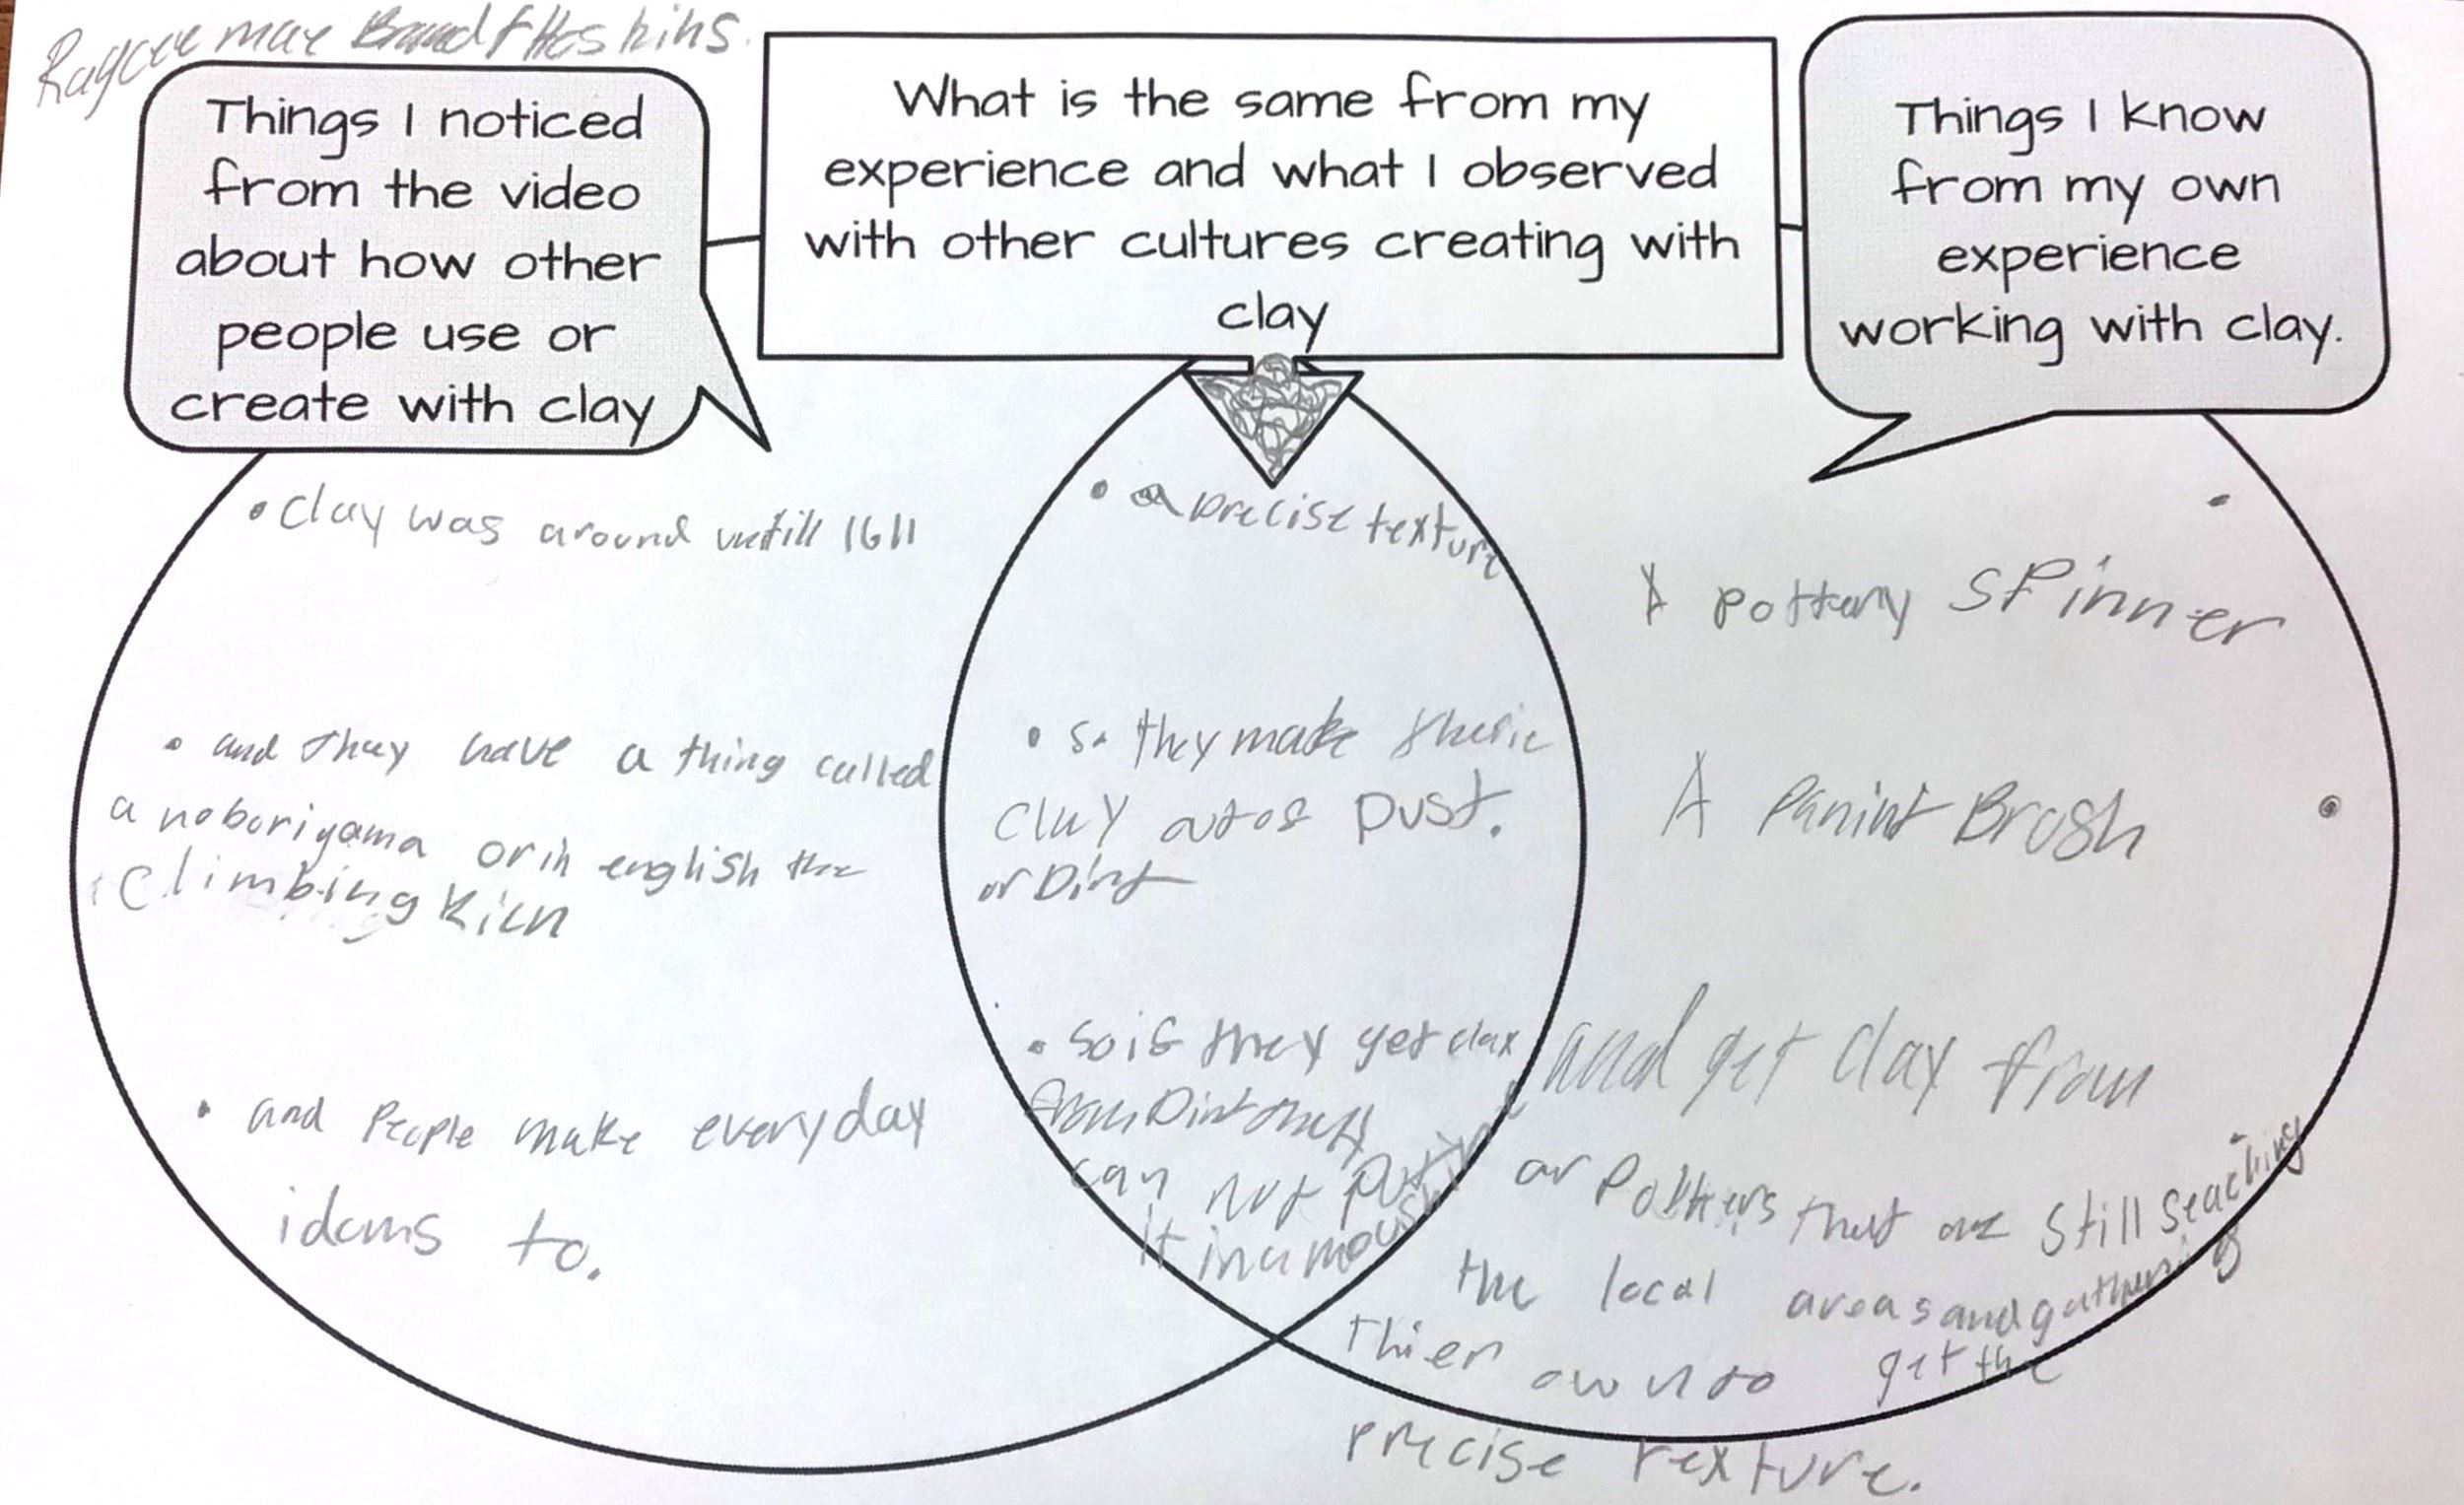 Things I noticed
from the video
about how other
people use or
create with clay
What is the same from my
experience and what I observed
with other cultures creating with
clay
Things I know
from my own
experience
working with clay.
• Clay was around untill 1611
• and they have a thing called
a noborigama or in english the
Climbing Kiln
• and People make everyday
idems to.
• a precise texture
• so they make
Clay Dust.
or Dirt
• so if they get clay
from Dirt
can not put
it in a
A pottery SPinner
A Panint Brush
and get clay from
or Potters that are still
the local areas and gathering
thier own to get the
precise texture.